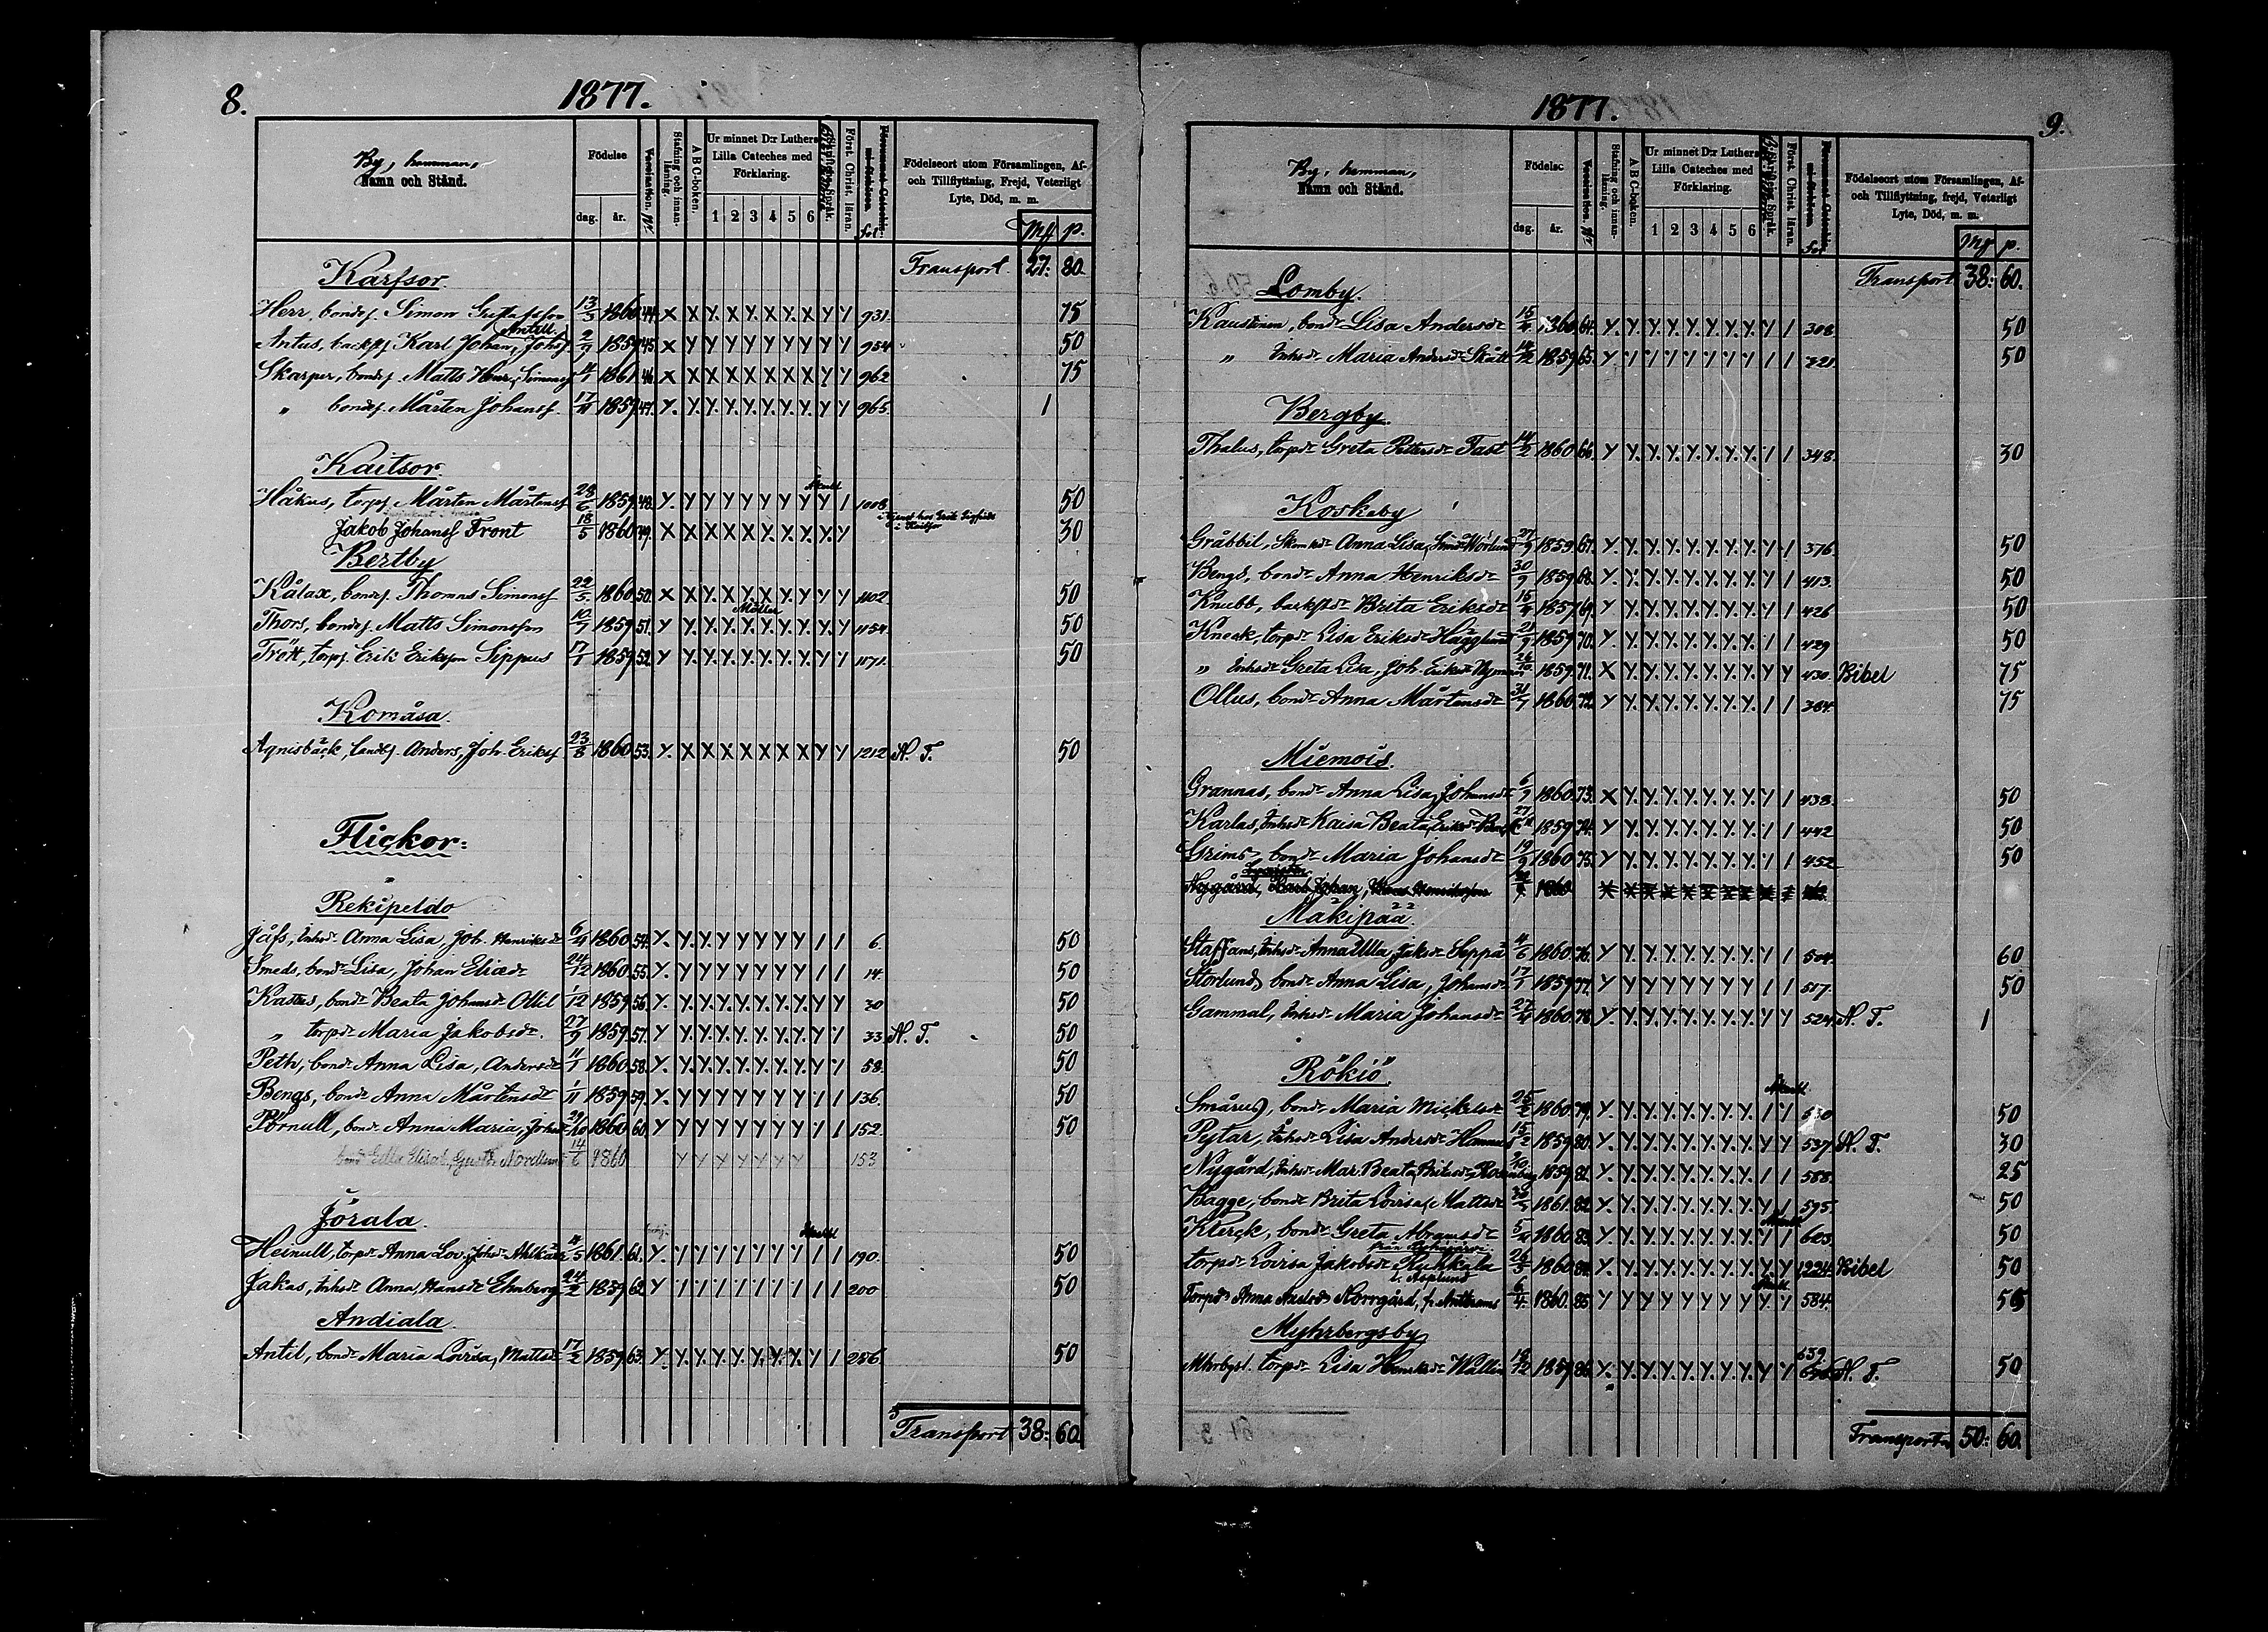 8.
1877.
By, hemman,
Namn och Stånd.
Födelse
dag. år.
Vaccination. №
Stafning och innan-läsning.
A B C-boken.
Ur minnet D:r Luthers
Lilla Cateches med
Förklaring.
1 2 3 4 5 6
Först. Christ. läran.
fol.
Födelseort utom Församlingen, Af-
och Tillflyttning, Frejd, Veterligt
Lyte, Död, m. m.
Mf p.
Transport. 27: 80.
Karfsor.
Herr, bondes. Simon Gustafsson 13/3 1860. 44. X X Y. X Y. X Y. X Y Y 931. 75
Antus, backstf. Karl Johan, Johsf. Antill 2/9 1859 45. X Y Y Y Y Y Y Y Y Y 954 50
Skarper, bondes. Matts Henr. Simonss 4/1 1861. 46. X X X X X X X X Y Y 962 75
„ bondes. Mårten Johanss 17/11 1859. 47. Y. Y. Y. Y. Y. Y. Y. Y. Y Y 965. 1
Kaitsor.
Håkus, torps. Mårten Mårtenss 28/6 1859. 48. Y. Y Y Y Y Y Y Y Y 1 1008. 50
Jakob Johanss Front 18/5 1860 49. X X X X X Y. X. Y. Y. Y i Kaitsor 30
Bertby
Kålax, bondes. Thomas Simonss 22/5. 1860. 50. X X Y. X Y. X Y. Y. Y Y 1102. 50
Möller
Thors, bondes. Matts Simonsson 10/7 1859. 51. Y Y. Y. Y. Y. Y. Y. Y. Y. Y 1154. 50
Trött, torps. Erik Eriksson Sippus 17/1 1859. 52. Y Y. Y. Y. Y. Y. Y. Y. Y Y 1171. 50
Komåsa.
Agnisbäck, bondes. Anders, Joh. Erikss 23/8 1860. 53. Y. X X X X X X X Y Y 1212 N. T. 50
Flickor:
Rekipeldo
Jåfs, Inhsdr Anna Lisa, Joh. Henriksdr 6/4 1860. 54. Y. Y. Y. Y Y Y Y Y 1 1 6. 50
Smeds, bondr Lisa, Johan Eliædr 24/12 1860. 55. Y. Y Y Y Y Y Y Y 1 1 14. 50
Kattus, bondr Beata Johansdr Ollil 1/12 1859. 56. Y. Y. Y. Y. Y. Y. Y. Y. Y Y 30 50
„ torpdr Maria Jakobsdr. 27/9 1859. 57. Y Y. Y. Y. Y. Y. Y. Y. Y Y 33. N. T. 50
Peth, bondr Anna Lisa, Andersdr 11/1 1860. 58. Y. Y. Y. Y. Y. Y. Y. Y. Y Y 58. 50
Bengs, bondr Anna Mårtensdr 1/11 1859. 59. Y. Y Y Y Y Y Y Y 1 1 136. 50
Pörnull, bondr Anna Maria, Johsdr 29/10 1860. 60. Y Y Y Y Y Y Y Y 1 1 152. 50
bondr Edla Elisab., Gustfr. Nordlund 14/6 1860 Y Y Y Y Y Y Y 153
Jörala.
Heinull, torpdr Anna Lov. Johdr 4/5 1861. 61. Y. Y Y Y Y Y Y Y 1 1 190. 50
Jakas, Inhsdr Anna, Hansdr Ehnberg 24/2 1859. 62. Y 1 1 1 1 1 1 1 1 1 200 50
Andiala.
Antil, bondr Maria Lovisa, Mattsdr 17/2 1859. 63. Y. Y. Y. Y. Y. Y. Y. Y. Y 1 256. 50
Transport 38: 60.
1877.
9.
By, hemman,
Namn och Stånd.
Födelse
dag. år.
Vaccination. №
Stafning och innan-läsning.
A B C-boken.
Ur minnet D:r Luthers
Lilla Cateches med
Förklaring.
1 2 3 4 5 6
Först. Christ. läran.
fol.
Födelseort utom Församlingen, Af-
och Tillflyttning, frejd, Veterligt
Lyte, Död, m. m.
Mf p.
Transport 38: 60.
Lomby.
Kaustinen, bondr Lisa Andersdr 15/4 1860. 64. Y. Y. Y. Y. Y. Y. Y. Y. Y 1 308. 50
„ Inhsdr Maria Andersdr Skått 14/12 1859. 65. Y 1 1 1 1 1 1 1 1 1 321. 50
Bergby.
Thalus, torpdr Greta Pettersdr Fast 14/2 1860 66. Y Y. Y. Y. Y. Y. Y. Y. 1 1 348. 30
Koskeby
Gråbbil, Anna Lisa, 27/9 1859. 67. Y. Y. Y. Y. Y. Y. Y. Y. Y 1 376. 50
Bengs, bondr Anna Henriksdr 30/9 1859. 68. Y. Y. Y. Y. Y. Y. Y. Y. Y 1 413. 50
Knubb, backstdr Brita Eriksdr 15/4 1857. 69. Y Y. Y. Y. Y. Y. Y. Y. Y 1 426 50
Kneck, torpdr Lisa Eriksdr Hägglund 21/9 1859. 70. Y. Y. Y. Y. Y. Y. Y. Y. 1 1 429 50
„ Inhsdr Greta Lisa, Joh. Eriksdr Nyman 26/10. 1859. 71. X Y. Y. Y. Y. Y. Y. Y. Y Y 430. Bibel 75
Ollus, bondr Anna Mårtensdr 31/7 1860. 72. Y Y. Y. Y. Y. Y. Y. Y. 1 1 384. 75
Miemois.
Grannas, bondr Anna Lisa, Johansdr 6/9 1860. 73. X Y. Y. Y. Y. Y. Y. Y. Y 1 438. 50
Karlas, Inhsdr Kaisa Beata, Eriksdr 27/11 1859. 74. Y Y. Y. Y. Y. Y. Y. Y. 1 1 442 50
Grims, bondr Maria Johansdr 19/9 1860. 75. Y Y. Y. Y. Y. Y. Y. Y. 1 1 452 50
Nygård, Karl Johan, 1860
Mäkipää.
Staffans, Inhsdr Anna Ulla, Jaksdr Seppä 4/6 1860. 76. Y Y. Y. Y. Y. Y. Y. Y. Y 1 504. 60
Storlund, bondr Anna Lisa, Johansdr 17/1 1859. 77. Y. Y Y Y Y Y Y Y 1 1 517. 50
Gammal, Inhsdr Maria Johansdr 27/4 1860. 78. Y. Y. Y. Y. Y. Y. Y. Y. Y Y 524. N. T. 1
Rökiö.
Smårus, bondr Maria Mickelsdr 25/2 1860. 79. Y. Y. Y. Y. Y. Y. Y. Y. 1 Y 530 50
Pejtar, Inhsdr Lisa Andersdr 15/2 1859. 80. Y. Y. Y. Y. Y. Y. Y. Y. Y Y 537. N. T. 30
Nygård, Inhsdr Mar. Beata, 1859. 81. Y. Y. Y. Y. Y. Y. Y. Y. 1 1 588. 25
Bagge, bondr Brita Lovisa, Mattsdr 30/3 1861. 82. Y. Y. Y. Y. Y. Y. Y. Y. Y 1 595. 50
Klerck, bondr Greta Abramsdr 5/4 1860. 83. Y Y. Y. Y. Y. Y. Y. Y. 1 1 623. 50
torpdr Lovisa Jakobsdr Ruhkala 26/3 1860. 84. Y. Y. Y. Y. Y. Y. Y. Y. Y Y 1224. Bibel 50
l. Asplund
Torpdr Anna Norrgård, 6/4 1860. 85. Y Y Y Y Y Y Y Y Y Y 584. 50
Myhrbergsby
torpdr Lisa Henriksdr Wallin 18/12 1859. 86. Y. Y. Y. Y. Y. Y. Y. Y. Y Y 639 N. T. 50
Transport 50: 60.